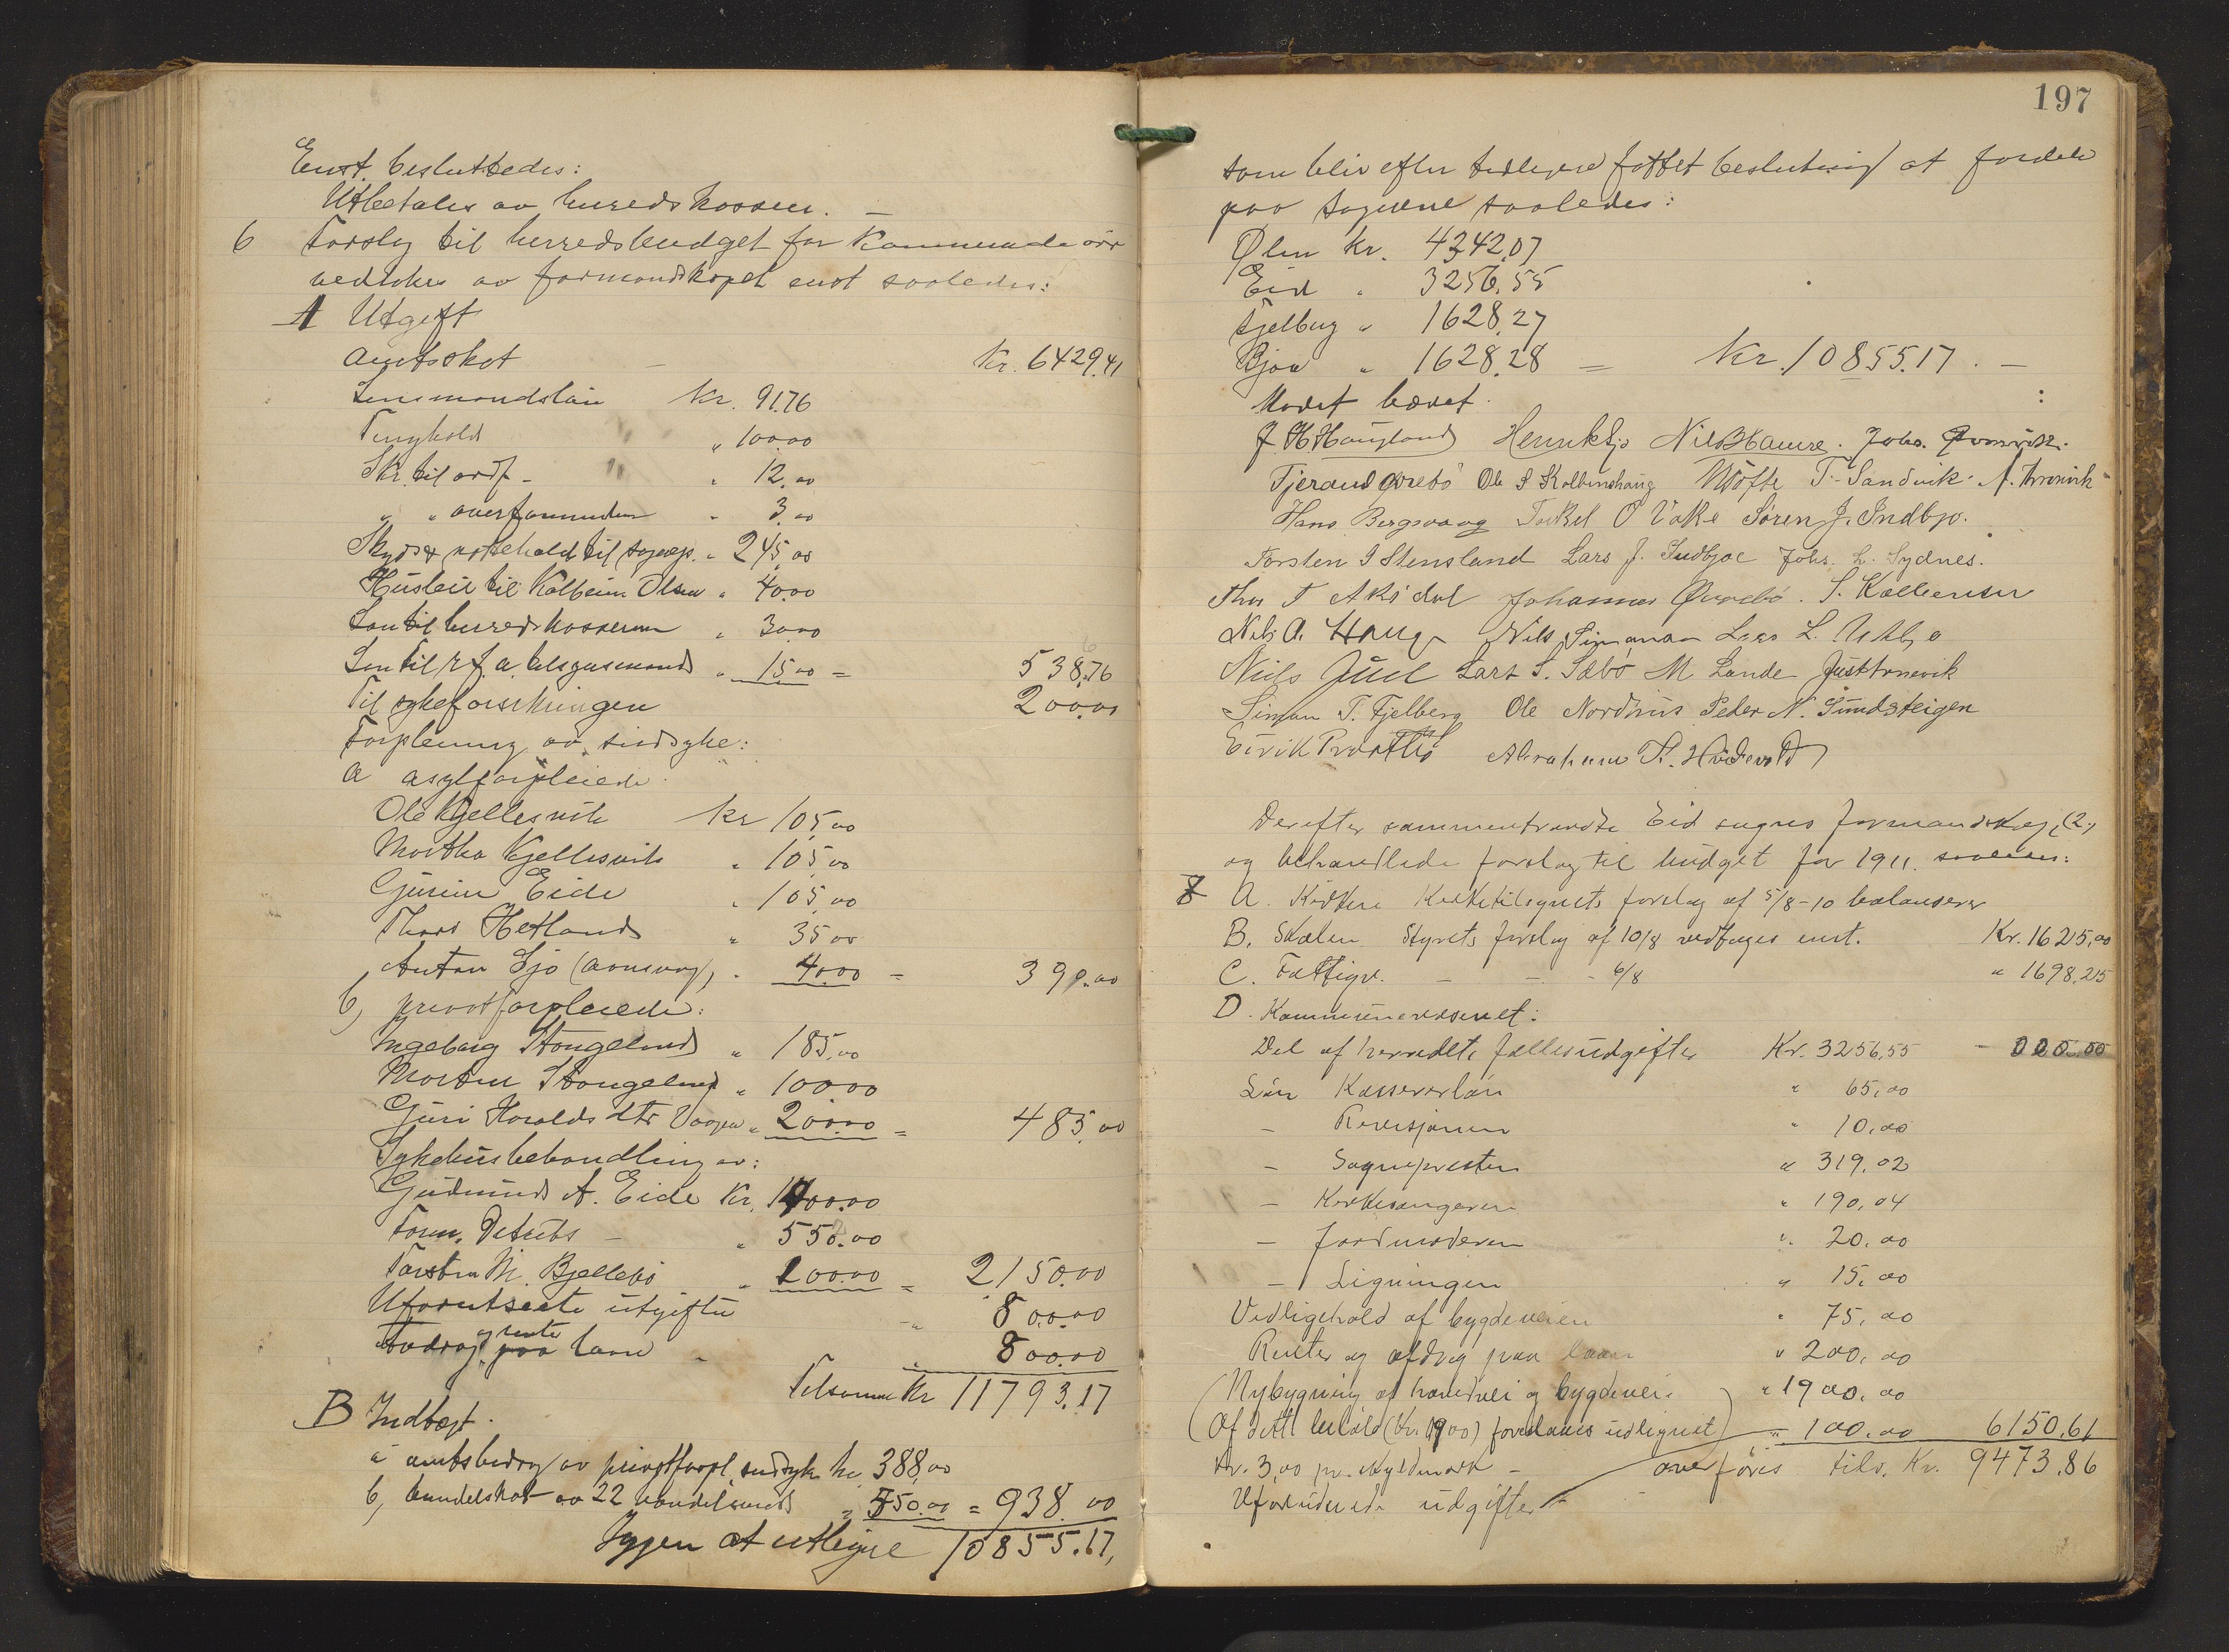 Enst. besluttedes:
Utbetales av herredskassen. —
6 Forslag til herredsbudget for kommende aar
vedtokes av formandskapet enst saaledes:
A Utgift
Amtsskat — Kr. 6429.41
Lensmandsløn Kr. 91.76
Tinghold " 100.00
Skr. til ordf - " 12.00
" " overformynder " 3.00
Skyds & kosthold til sognepr. " 245,00
Husleie til Kolbein Olsen " 40.00
Løn til herredskassereren " 30.00
Løn til r.f.a. tilsynsmand " 15.00 = 538.76
Til sykeforsikringen 200.00
Forpleining av sindsyke:
a asylforpleiede.
Ole Kjellesvik kr 105,00
Martha Kjellesvik " 105,00
Gurine Eide " 105,00
Thora Hetland " 35.00
Anton Sjo " 40.00 = 390.00
b, privatforpleiede:
Ingeborg Stangeland " 185,00
Morten Stangeland " 100.00
Guri Haralds dtr Vaagen " 200.00 = 485,00
Sykehusbehandling av:
Gudmund A. Eide Kr. 1400.00
" 550.00
Torsten M. Bjellebø " 200.00 = 2150.00
Uforutseete utgifter " 800.00
Avdrag og rente paa laan - " 800.00
Tilsammen Kr 11793.17
B Indtægt.
a amtsbidrag av privatforpl. sindsyke kr 388,00
b, handelskat av 22 handelsmænd " 550.00 = 938.00
Igjen at utligne 10855.17,
197
som blir efter tidligere fattet beslutning at fordele
paa sognene saaledes:
Ølen Kr. 4342.07
Eid " 3256,55
Fjelberg " 1628,27
Bjoa " 1628.28 = Kr. 10855.17. —
Møtet hævet.
J H Haugland Henrik Sjo Nils B Hamre. Johs.
Tjerand Øvrebö Ole S Kolbenshaug N Tøfte T. Sandvik
Hans Bergsvaag Torkel O Vake Søren J. Indbjo.
Torsten I Stensland Lars J. Indbjoe Johs. L. Sydnes.
Thos T Aksdal Johannes Øvrebö. S. Kolbensen
Nils A. Haug Nils Simonsen Lars L. Utbjo
Niels Juul Lars S. Sæbö M Lande
Simon T. Fjelberg Ole Nordhus Peder N. Sundsteigen
Eirik Abraham T. Hvidevold
Derefter sammentraadte Eid sogns formandskap (2,
og behandlede forslag til budget for 1911. saaledes:
7 A. Kirken Kirketilsynets forslag af 5/8-10 balanserer
B. Skolen Styrets forslag af 10/8 vedtages enst. Kr. 1625,00
C. Fattigv. — — - 6/8 " 1698,25
D. Kommunevæsenet:
Del af herredets fællesudgifter Kr. 3256,55 -
Løn Kassererløn " 65,00
- Revisjonen " 10,00
- Sognepresten " 319.02
- Kirkesangeren " 190,04
- Jordmoderen " 20.00
- Ligningen " 15,00
Vedligehold af bygdeveien " 75,00
Renter og afdrag paa laan " 200,00
(Nybygning af hovedvei og bygdevei. ) " 1900.00
(Af dette beløb (Kr. 1900) forelaaes udlignet) " 100.00 6150,61
Kr. 3,00 pr. skyldmark - overføres tils. Kr. 9473.86
Uforudseede udgifter -